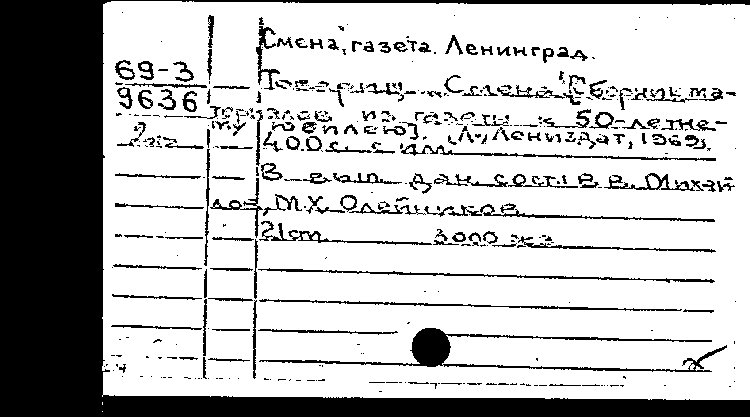 „Смена", газета. Ленинград.
69-3
9636
Товарищ „Смена". [Сборник ма-
териалов из газеты к 50-летне-
му юбилею]. Л., Лениздат, 1969.
400 с. с ил.
В вып. дан. сост.: В.В. Михай-
лов, М.Х. Олейников
21 cm. 3000 экз.